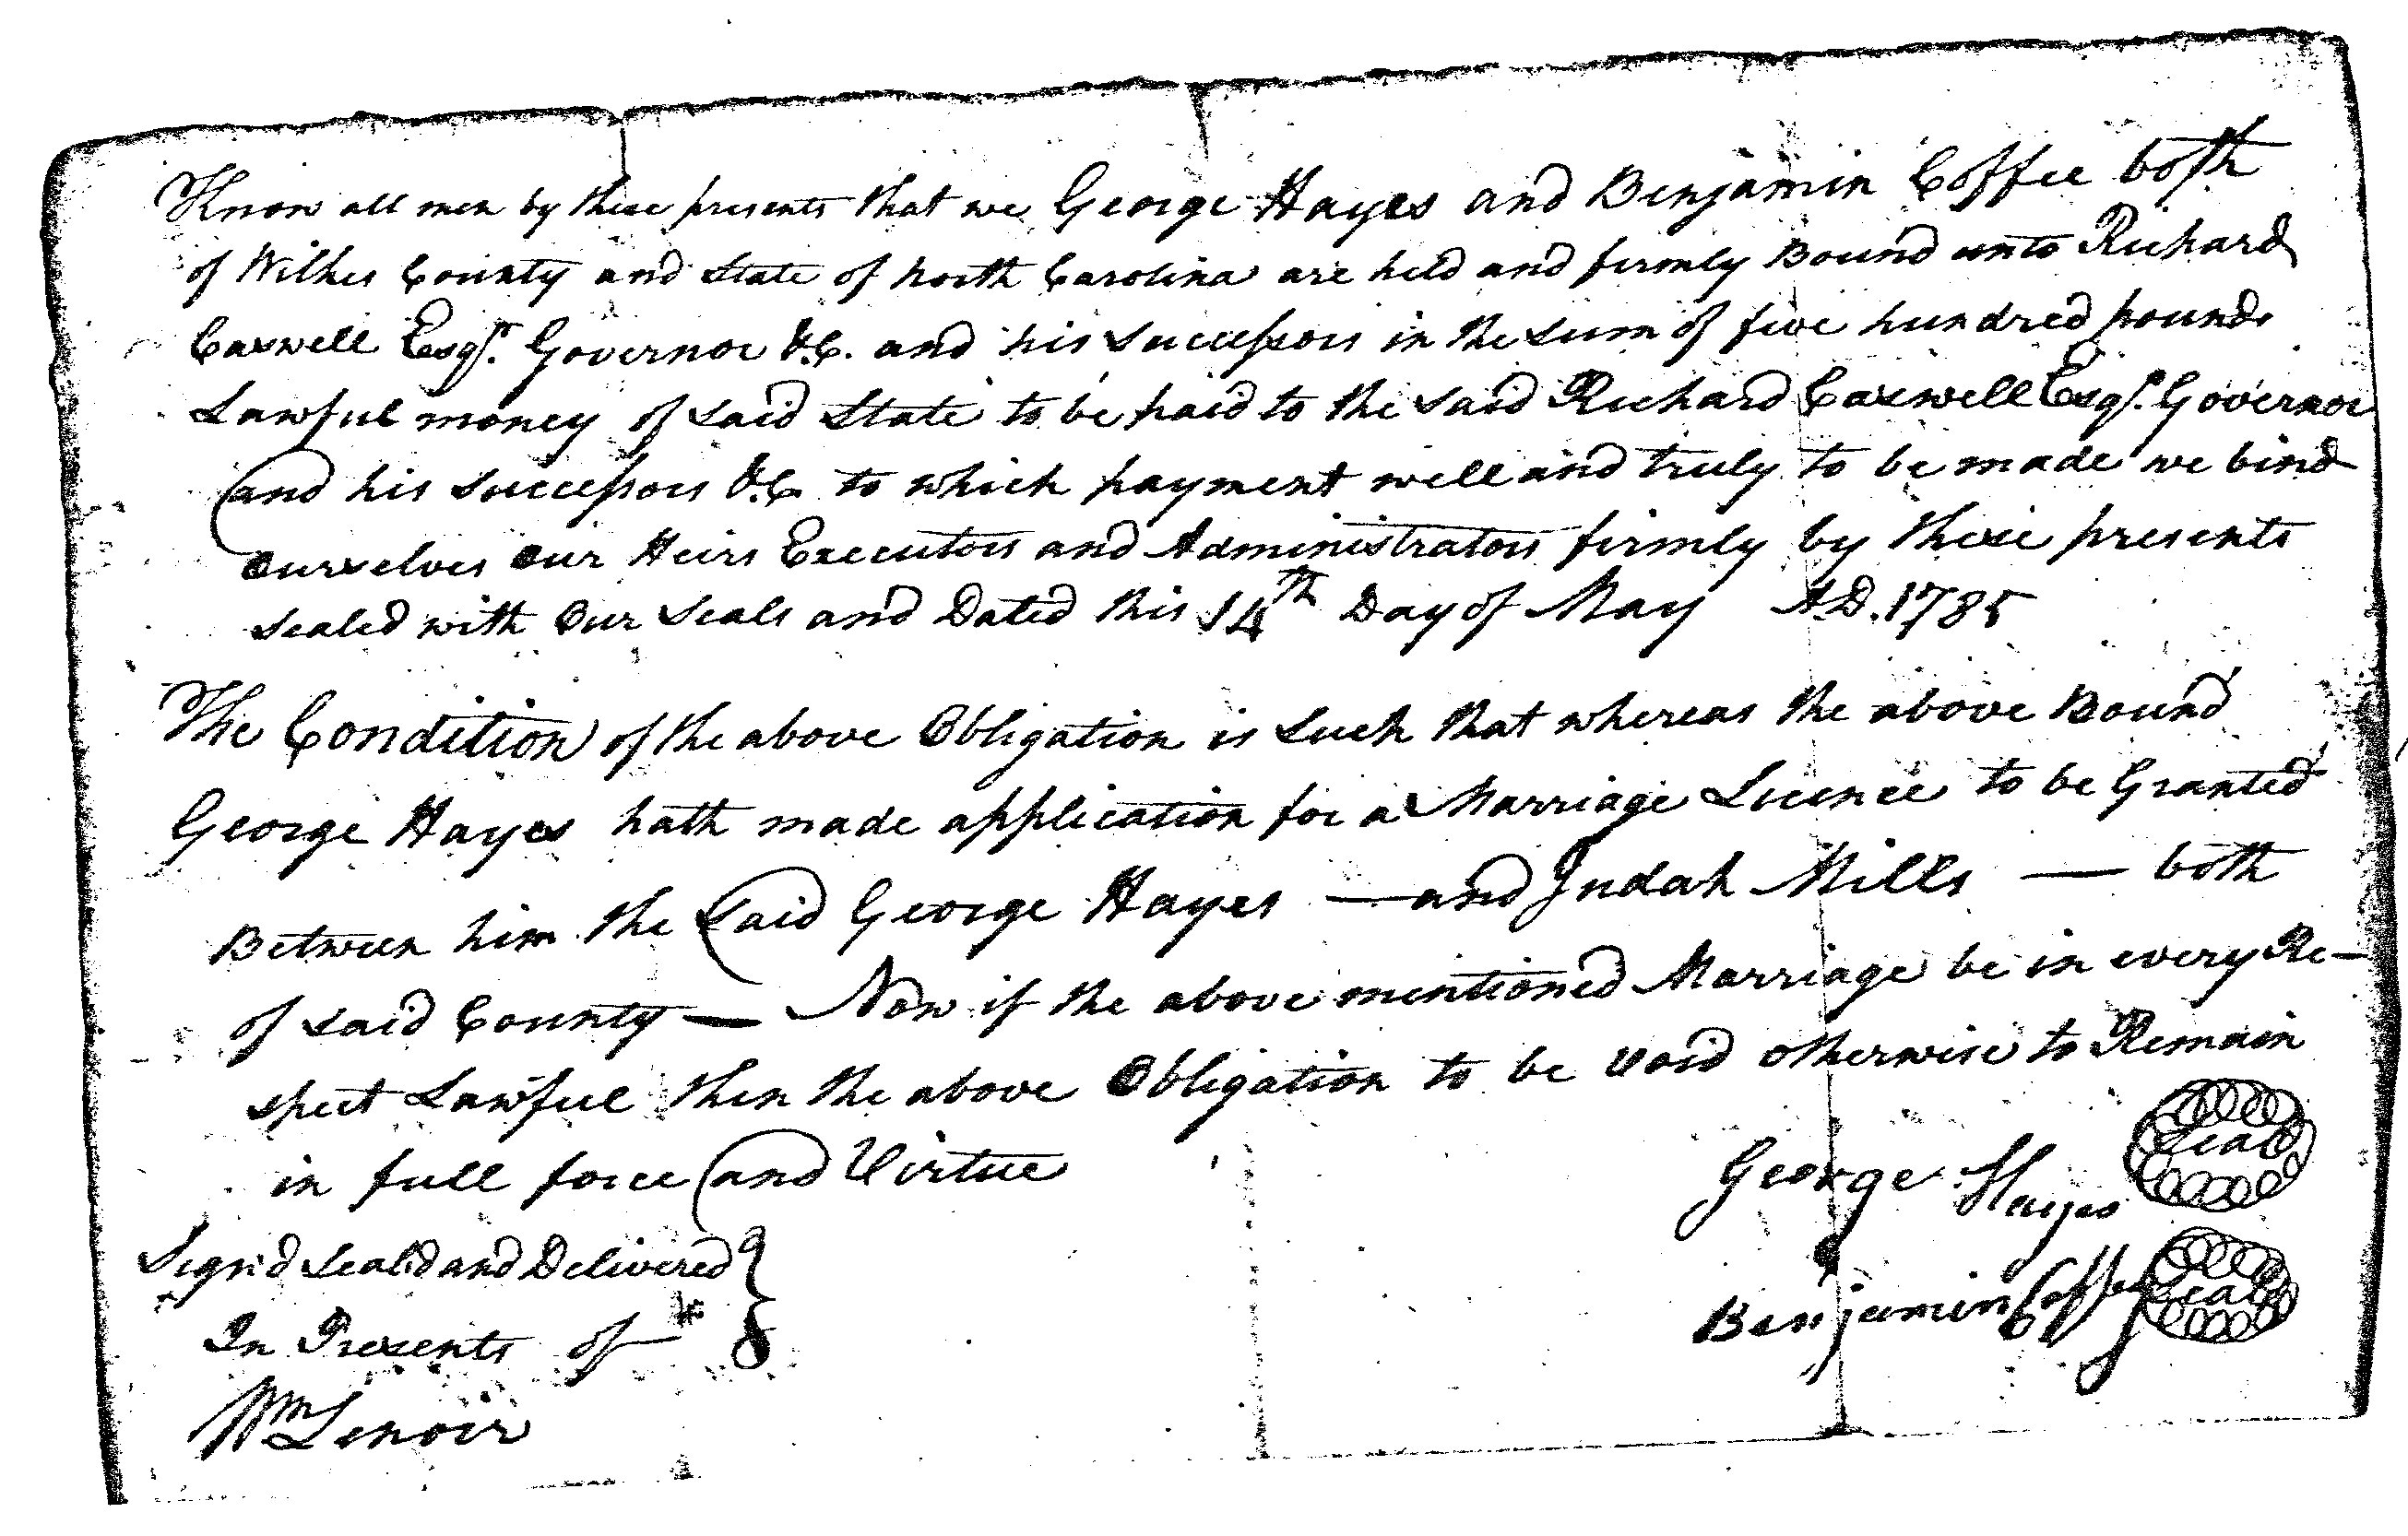 Know all men by these presents that we George Hayes and Benjamin Coffee both
of Wilkes County and State of North Carolina are held and firmly Bound unto Richard
Caswell Esqr. Governor &C. and his Successors in the Sum of five hundred pounds
Lawful money of said State to be paid to the said Richard Caswell Esqr. Governor
and his Successors &C to which payment well and truly to be made we bind
Ourselves Our Heirs Executors and Administrators firmly by these presents
Sealed with Our Seals and Dated this 14th Day of May A.D. 1785
The Condition of the above Obligation is Such that whereas the above Bound
George Hayes hath made application for a Marriage Licence to be Granted
Between him the Said George Hayes — and Judah Mills — both
of said County — Now if the above mentioned Marriage be in every Re-
spect Lawful then the above Obligation to be void otherwise to Remain
in full force and Virtue
George Hayes Seal
Sign'd Seal'd and Delivered
Benjamin Coffey Seal
In Presents of
Wm Lenoir